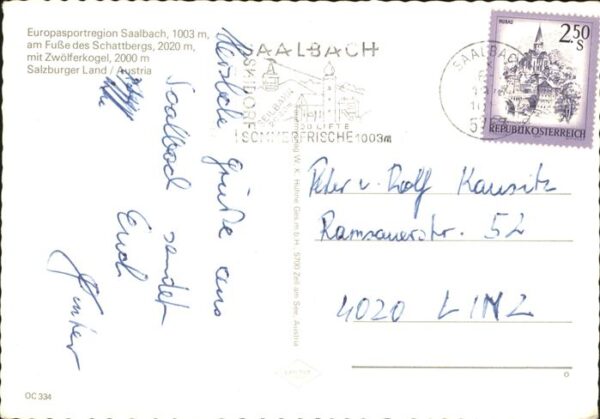 Europasportregion Saalbach, 1003 m,
am Fuße des Schattbergs, 2020 m,
mit Zwölferkogel, 2000 m
Salzburger Land / Austria
Herzliche Grüße aus
Saalbach sendet
Euch
Günther
SAALBACH
SKIDORF
SEILBAHN
LIFTE
SOMMERFRISCHE 1003m
SAALBACH
MURAU
2.50
S
REPUBLIK ÖSTERREICH
W. K. Hühne Ges.m.b.H. 5700 Zell am See, Austria
Peter u. Rolf Kausitz
Ramsauerstr. 52
4020 LINZ
OC 334